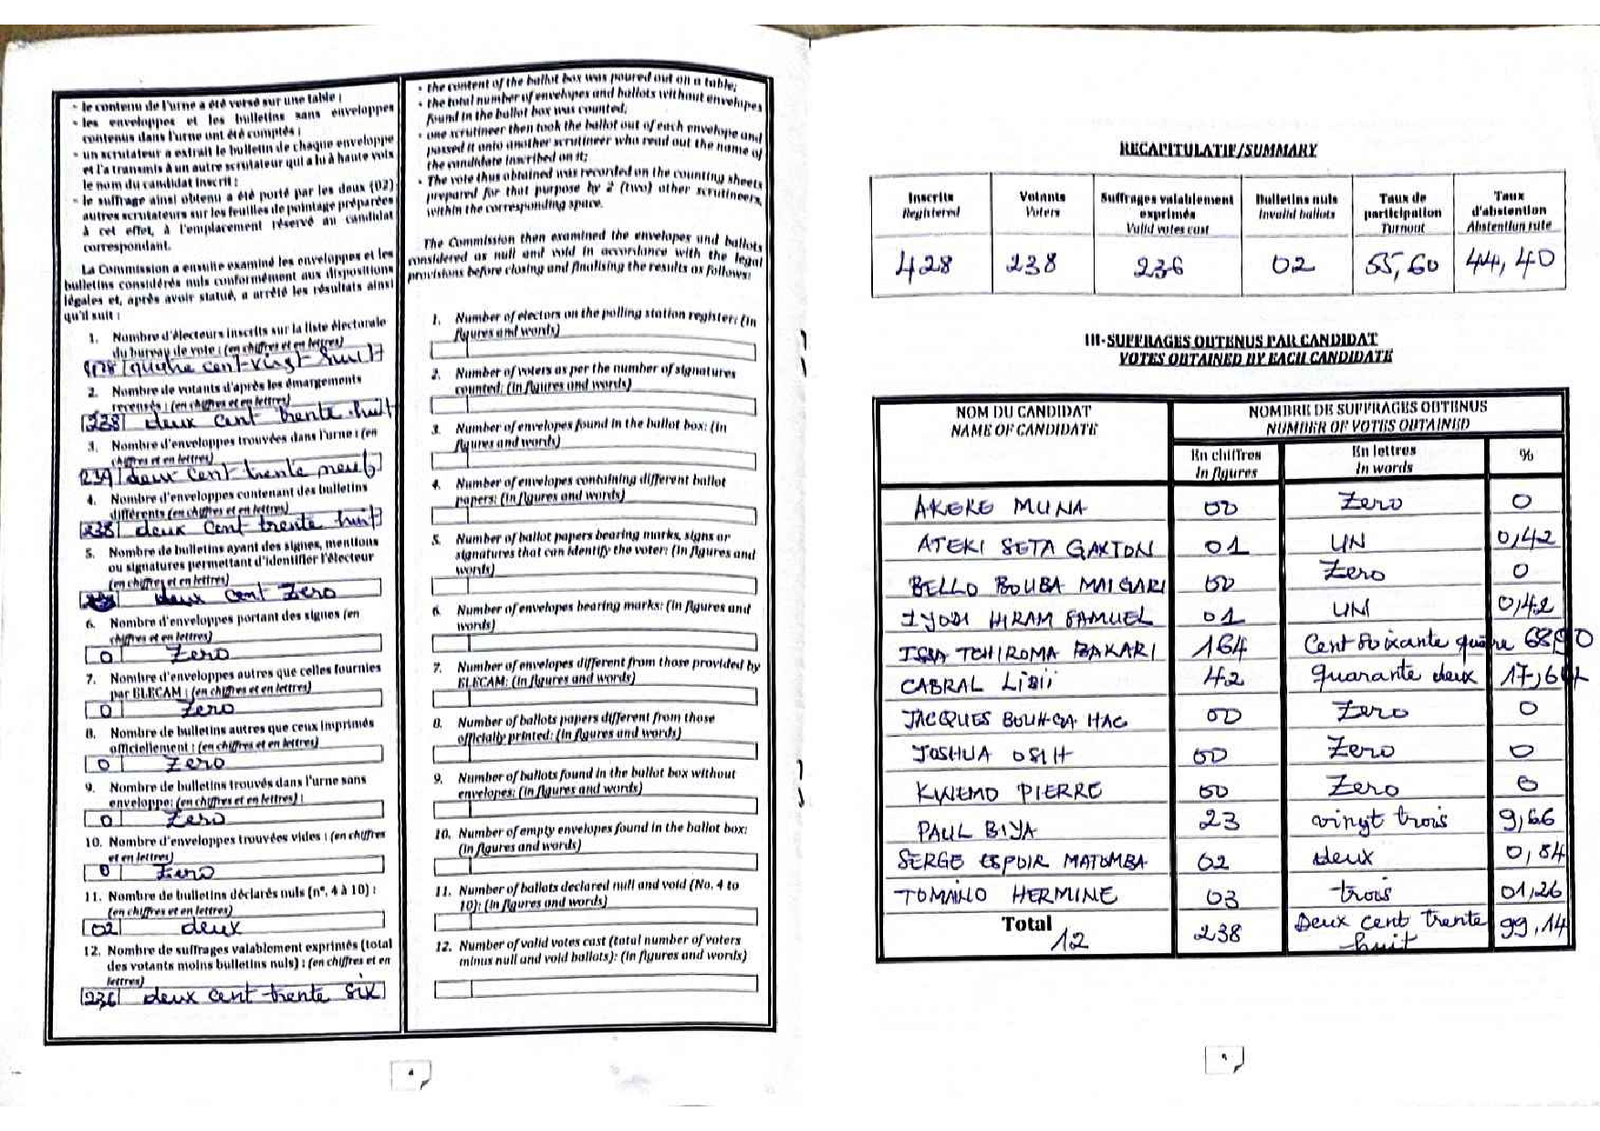 - le contenu de l'urne a été versé sur une table ;
- les enveloppes et les bulletins sans enveloppes
contenus dans l'urne ont été comptés ;
- un scrutateur a extrait le bulletin de chaque enveloppe
et l'a transmis à un autre scrutateur qui a lu à haute voix
le nom du candidat inscrit ;
- le suffrage ainsi obtenu a été porté par les deux (02)
autres scrutateurs sur les feuilles de pointage préparées
à cet effet, à l'emplacement réservé au candidat
correspondant.
La Commission a ensuite examiné les enveloppes et les
bulletins considérés nuls conformément aux dispositions
légales et, après avoir statué, a arrêté les résultats ainsi
qu'il suit :
1. Nombre d'électeurs inscrits sur la liste électorale
du bureau de vote : (en chiffres et en lettres)
428 quatre cent-vingt-huit
2. Nombre de votants d'après les émargements
recensés : (en chiffres et en lettres)
238 deux cent trente huit
3. Nombre d'enveloppes trouvées dans l'urne : (en
chiffres et en lettres)
239 deux cent trente neuf
4. Nombre d'enveloppes contenant des bulletins
différents (en chiffres et en lettres)
238 deux cent trente huit
5. Nombre de bulletins ayant des signes, mentions
ou signatures permettant d'identifier l'électeur
(en chiffres et en lettres)
deux cent zero
6. Nombre d'enveloppes portant des signes (en
chiffres et en lettres)
0 Zero
7. Nombre d'enveloppes autres que celles fournies
par ELECAM : (en chiffres et en lettres)
0 Zero
8. Nombre de bulletins autres que ceux imprimés
officiellement : (en chiffres et en lettres)
0 Zero
9. Nombre de bulletins trouvés dans l'urne sans
enveloppe: (en chiffres et en lettres) :
0 Zero
10. Nombre d'enveloppes trouvées vides : (en chiffres
et en lettres)
0 Zero
11. Nombre de bulletins déclarés nuls (n°. 4 à 10) :
(en chiffres et en lettres)
02 deux
12. Nombre de suffrages valablement exprimés (total
des votants moins bulletins nuls) : (en chiffres et en
lettres)
236 deux cent trente six
4
- the content of the ballot box was poured out on a table;
- the total number of envelopes and ballots without envelopes
found in the ballot box was counted;
- one scrutineer then took the ballot out of each envelope and
passed it onto another scrutineer who read out the name of
the candidate inscribed on it;
- The vote thus obtained was recorded on the counting sheets
prepared for that purpose by 2 (two) other scrutineers,
within the corresponding space.
The Commission then examined the envelopes and ballots
considered as null and void in accordance with the legal
provisions before closing and finalising the results as follows:
1. Number of electors on the polling station register: (in
figures and words)
2. Number of voters as per the number of signatures
counted: (in figures and words)
3. Number of envelopes found in the ballot box: (in
figures and words)
4. Number of envelopes containing different ballot
papers: (in figures and words)
5. Number of ballot papers bearing marks, signs or
signatures that can identify the voter: (in figures and
words)
6. Number of envelopes bearing marks: (in figures and
words)
7. Number of envelopes different from those provided by
ELECAM: (in figures and words)
8. Number of ballots papers different from those
officially printed: (in figures and words)
9. Number of ballots found in the ballot box without
envelopes: (in figures and words)
10. Number of empty envelopes found in the ballot box:
(in figures and words)
11. Number of ballots declared null and void (No. 4 to
10): (in figures and words)
12. Number of valid votes cast (total number of voters
minus null and void ballots): (in figures and words)
RECAPITULATIF/SUMMARY
Inscrits Registered Votants Voters Suffrages valablement exprimés Valid votes cast Bulletins nuls Invalid ballots Taux de participation Turnout Taux d'abstention Abstention rate
428 238 236 02 55,60 44,40
III-SUFFRAGES OBTENUS PAR CANDIDAT
VOTES OBTAINED BY EACH CANDIDATE
NOM DU CANDIDAT NOMBRE DE SUFFRAGES OBTENUS
NAME OF CANDIDATE NUMBER OF VOTES OBTAINED
En chiffres En lettres %
In figures In words
AKERE MUNA 00 Zero 0
ATEKI SETA GAXTON 01 UN 0,42
BELLO BOUBA MAIGARI 00 Zero 0
IYODI HIRAM SAMUEL 01 UN 0,42
ISSA TCHIROMA BAKARI 164 Cent soixante quatre 68,90
CABRAL Libii 42 quarante deux 17,64
JACQUES BOUHGA HAG 00 Zero 0
JOSHUA OSIH 00 Zero 0
KWEMO PIERRE 00 Zero 0
PAUL BIYA 23 vingt trois 9,66
SERGE ESPOIR MATOMBA 02 deux 0,84
TOMAINO HERMINE 03 trois 01,26
Total 12 238 Deux cent trente huit 99,14
5